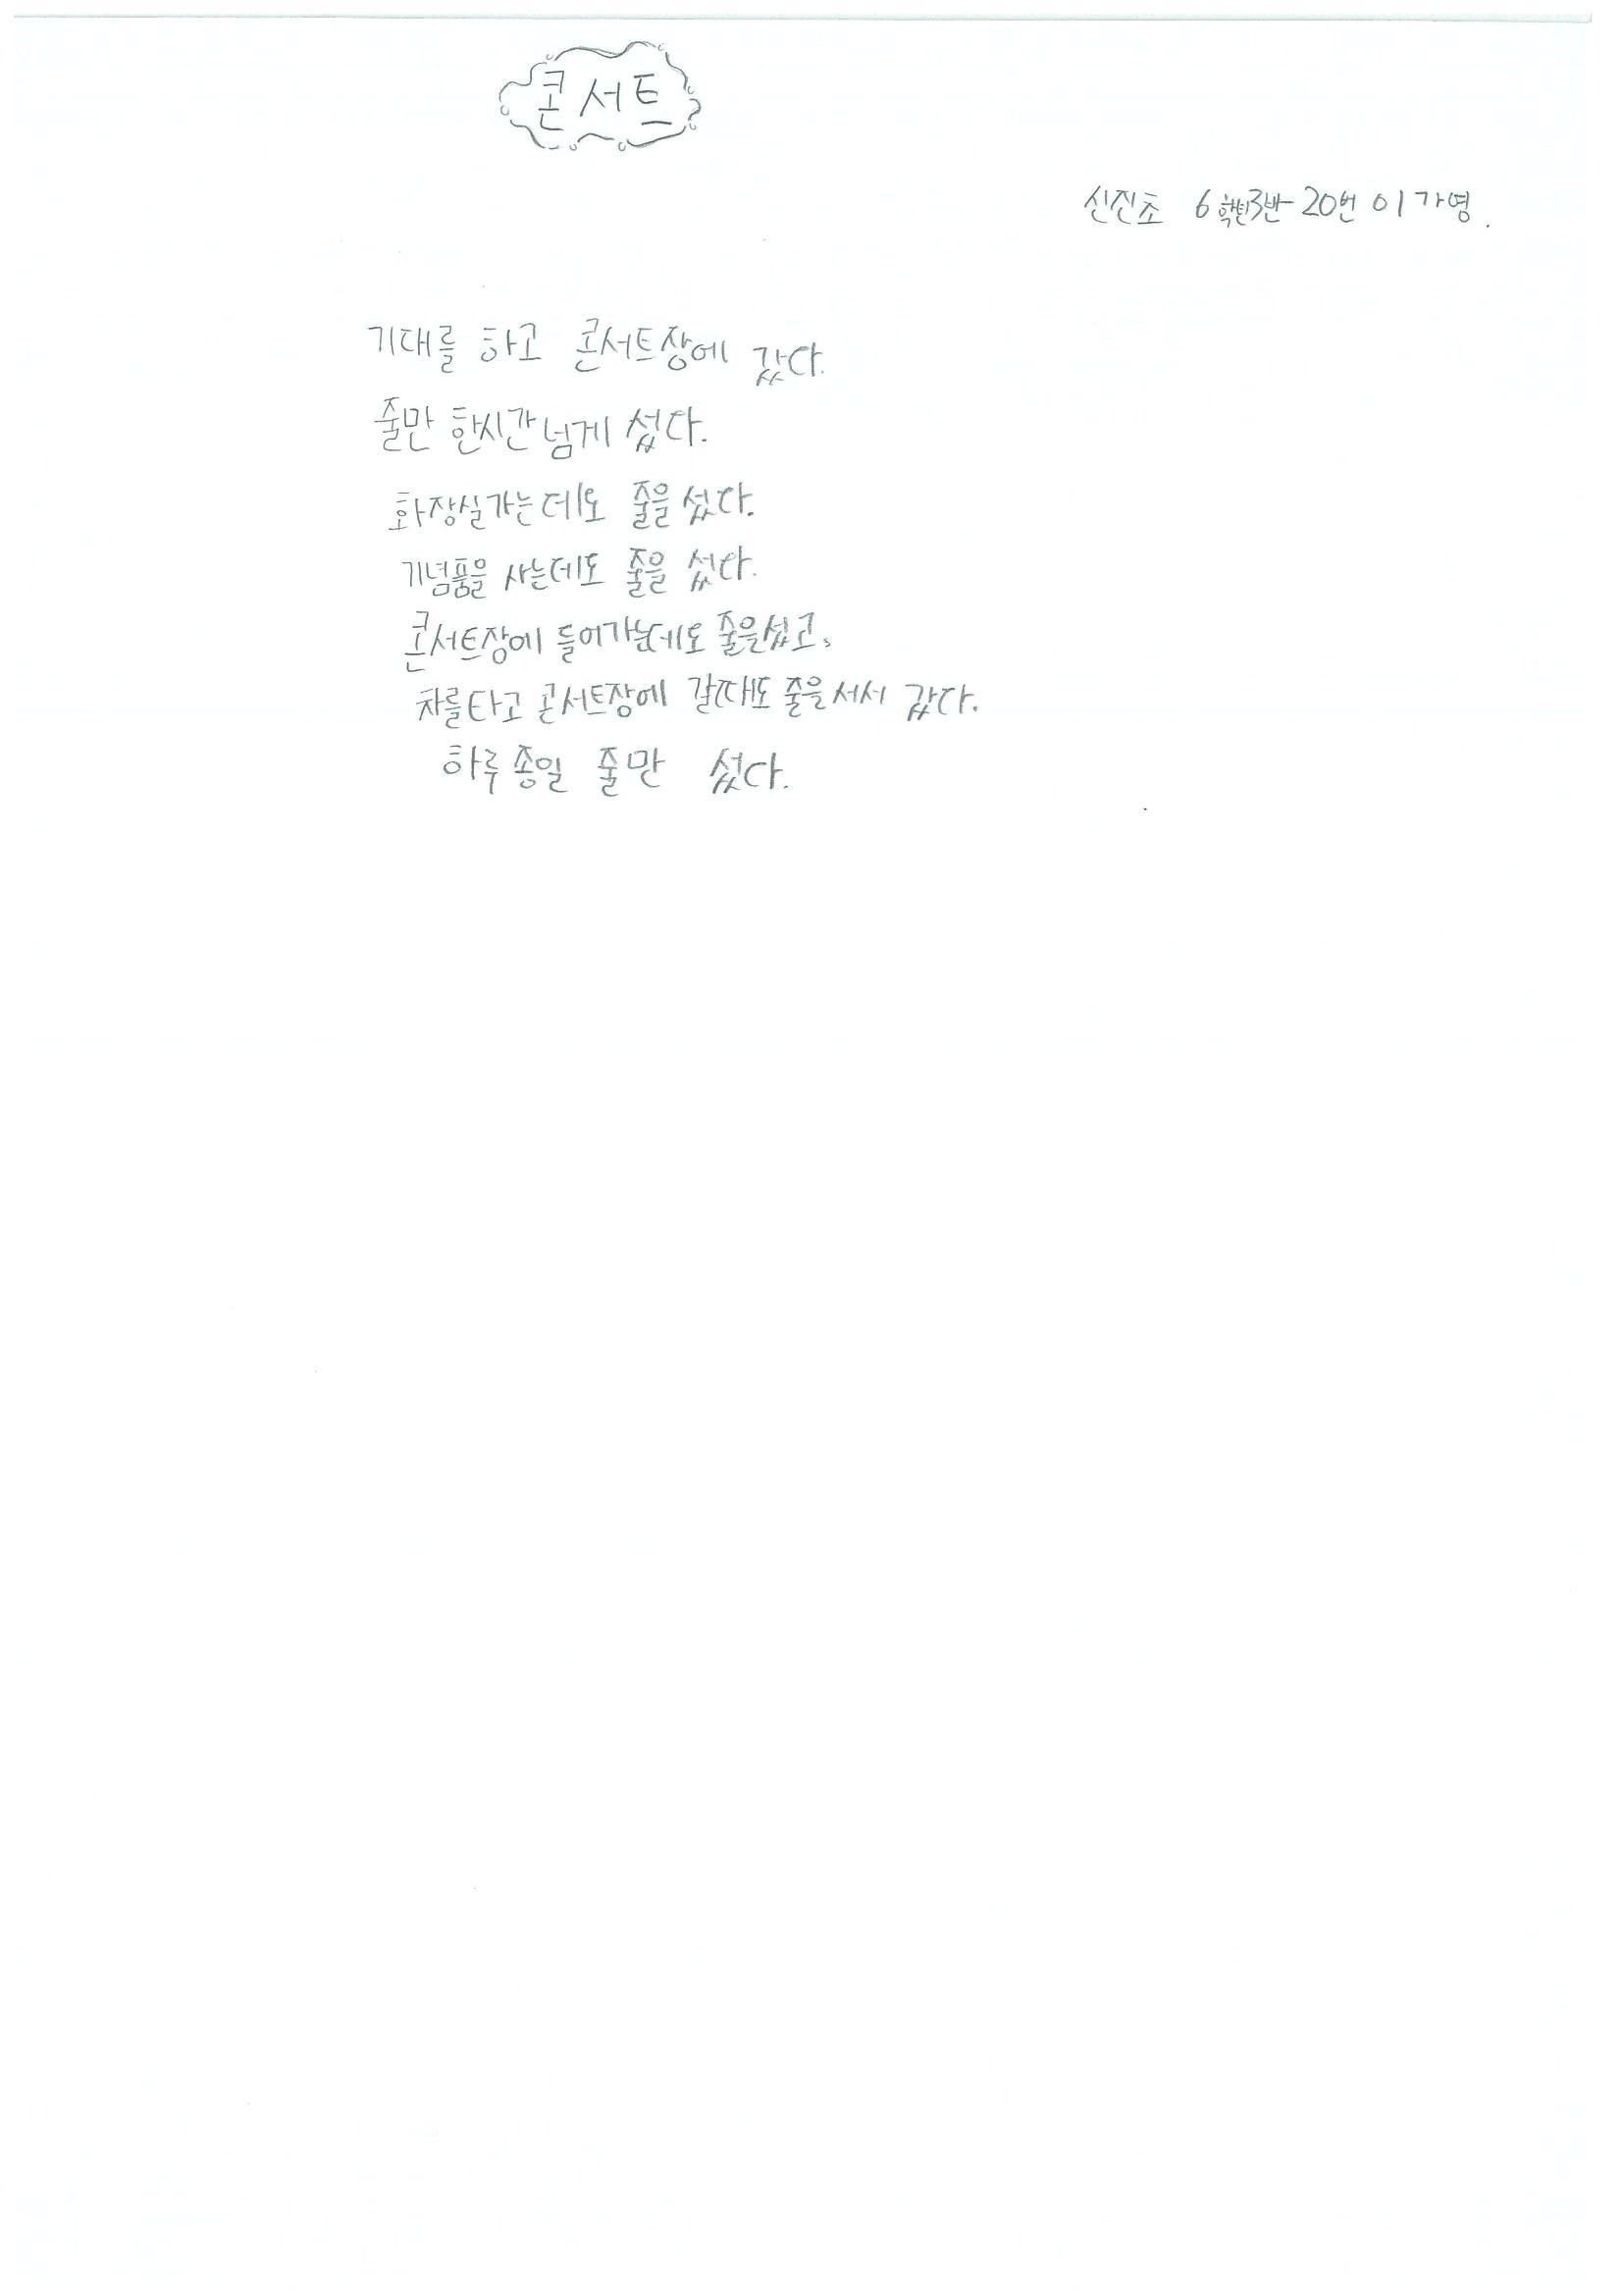 콘서트
신진초 6학년3반 20번 이가영.
기대를 하고 콘서트장에 갔다.
줄만 한시간 넘게 섰다.
화장실가는데도 줄을 섰다.
기념품을 사는데도 줄을 섰다.
콘서트장에 들어가는데도 줄을섰고,
차를타고 콘서트장에 갈때도 줄을서서 갔다.
하루 종일 줄만 섰다.